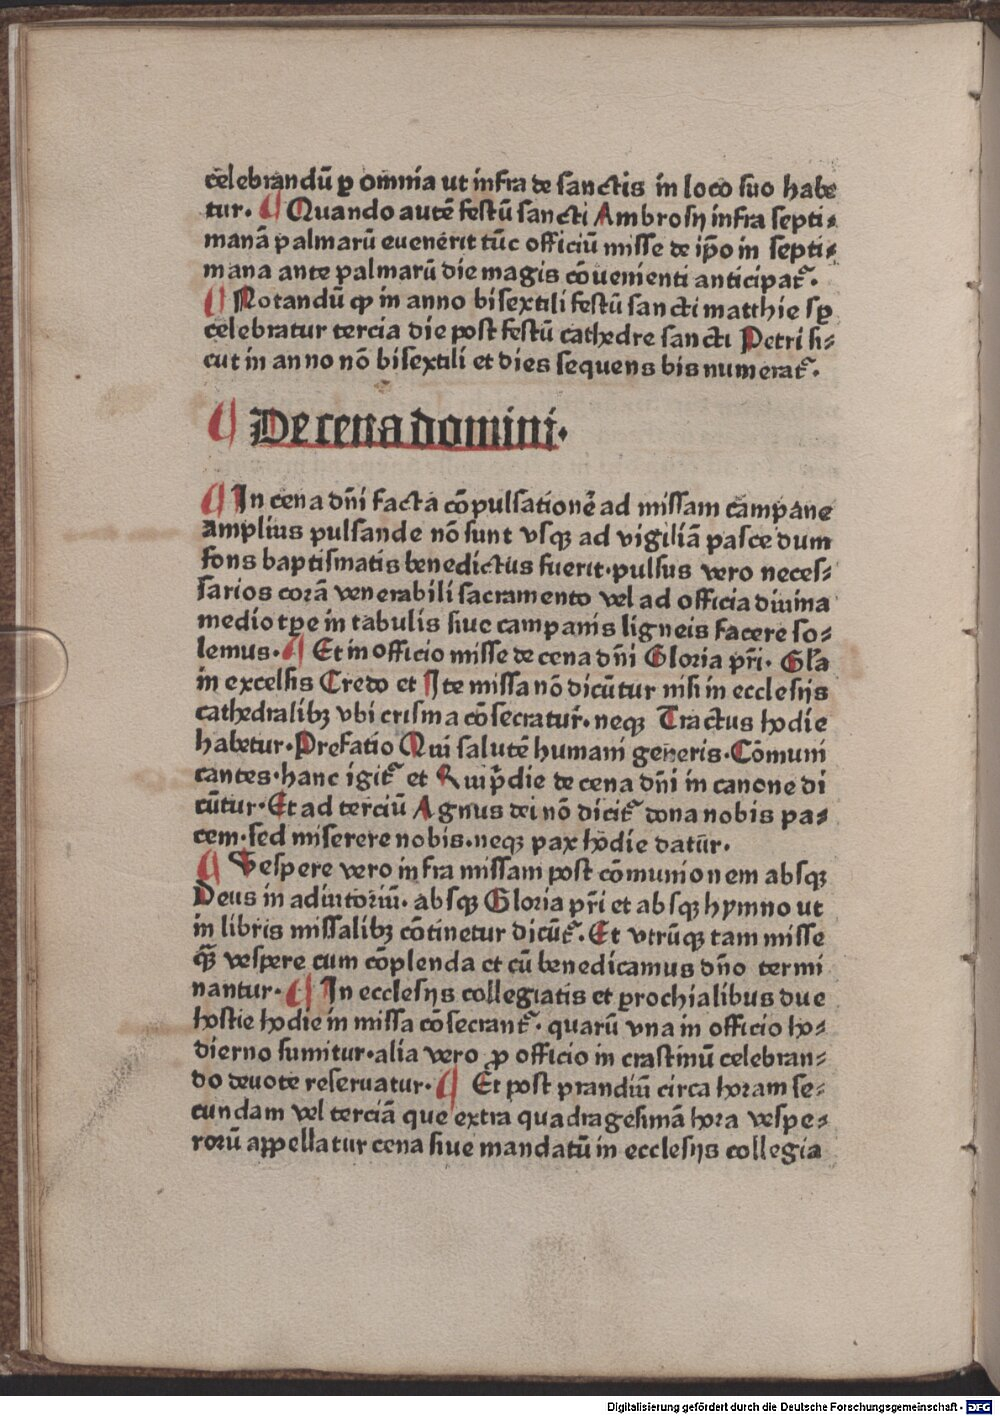 celebrandū ꝑ omnia ut infra de sanctis in loco suo habe
tur. ¶ Quando autē festū sancti Ambrosij infra septi⸗
manā palmarū euenerit tūc officiū misse de ip̄o in septi⸗
mana ante palmarū die magis cōuenienti anticipat᷑.
¶ Notandū ꝙ in anno bisextili festū sancti matthie sꝑ
celebratur tercia die post festū cathedre sancti Petri si⸗
cut in anno nō bisextili et dies sequens bis numerat᷑.
¶ De cena domini.
¶ In cena dn̄i facta cōpulsationē ad missam campane
amplius pulsande nō sunt vsqꝫ ad vigiliā pasce dum
fons baptismatis benedictus fuerit. pulsus vero neces⸗
sarios corā venerabili sacramento vel ad officia diuina
medio tꝑe in tabulis siue campanis ligneis facere so⸗
lemus. ¶ Et in officio misse de cena dn̄i Gloria pr̄i. Gl̄a
in excelsis Credo et Ite missa nō dicūtur nisi in ecclesijs
cathedralibꝫ vbi crisma cōsecratur. neqꝫ Tractus hodie
habetur. Prefatio Qui salutē humani generis. Cōmuni
cantes. hanc igit᷑ et Qui p̄die de cena dn̄i in canone di
cūtur. Et ad terciū Agnus dei nō dicit᷑ dona nobis pa⸗
cem. sed miserere nobis. neqꝫ pax hodie datur.
¶ Vespere vero infra missam post cōmunionem absqꝫ
Deus in adiutoriū. absqꝫ Gloria pr̄i et absqꝫ hymno ut
in libris missalibꝫ cōtinetur dicūt᷑. Et vtrūqꝫ tam misse
qᷓꝫ vespere cum cōplenda et cū benedicamus dn̄o termi
nantur. ¶ In ecclesijs collegiatis et ꝑrochialibus due
hostie hodie in missa cōsecrant᷑. quarū vna in officio ho⸗
dierno sumitur. alia vero ꝓ officio in crastinū celebran⸗
do deuote reseruatur. ¶ Et post prandiū circa horam se⸗
cundam vel terciā que extra quadragesimā hora vespe⸗
rorū appellatur cena siue mandatū in ecclesijs collegia
Digitalisierung gefördert durch die Deutsche Forschungsgemeinschaft - DFG